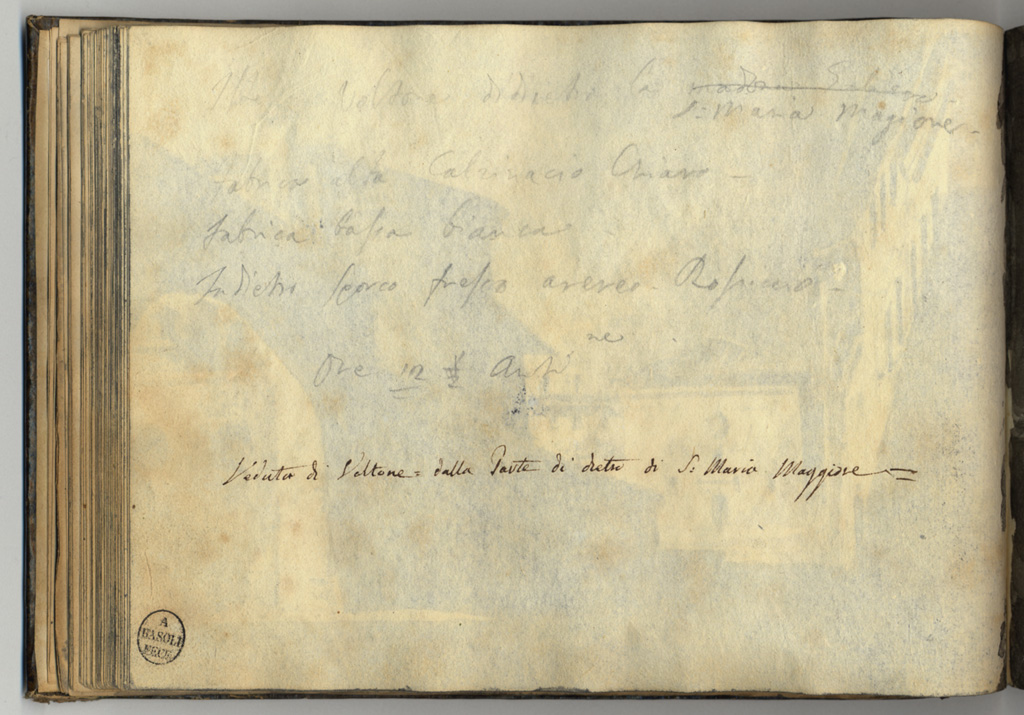 Voltone di dietro la
S: Maria Magiore
fabrica alta Calcinacio Chiaro
fabrica bassa bianca
Indietro sporco fresco aereo Rossiccio
Ore 12 ½ Anti
ne
Veduta di Voltone = dalla Parte di dietro di S: Maria Maggiore =
A
BASOLI
FECE